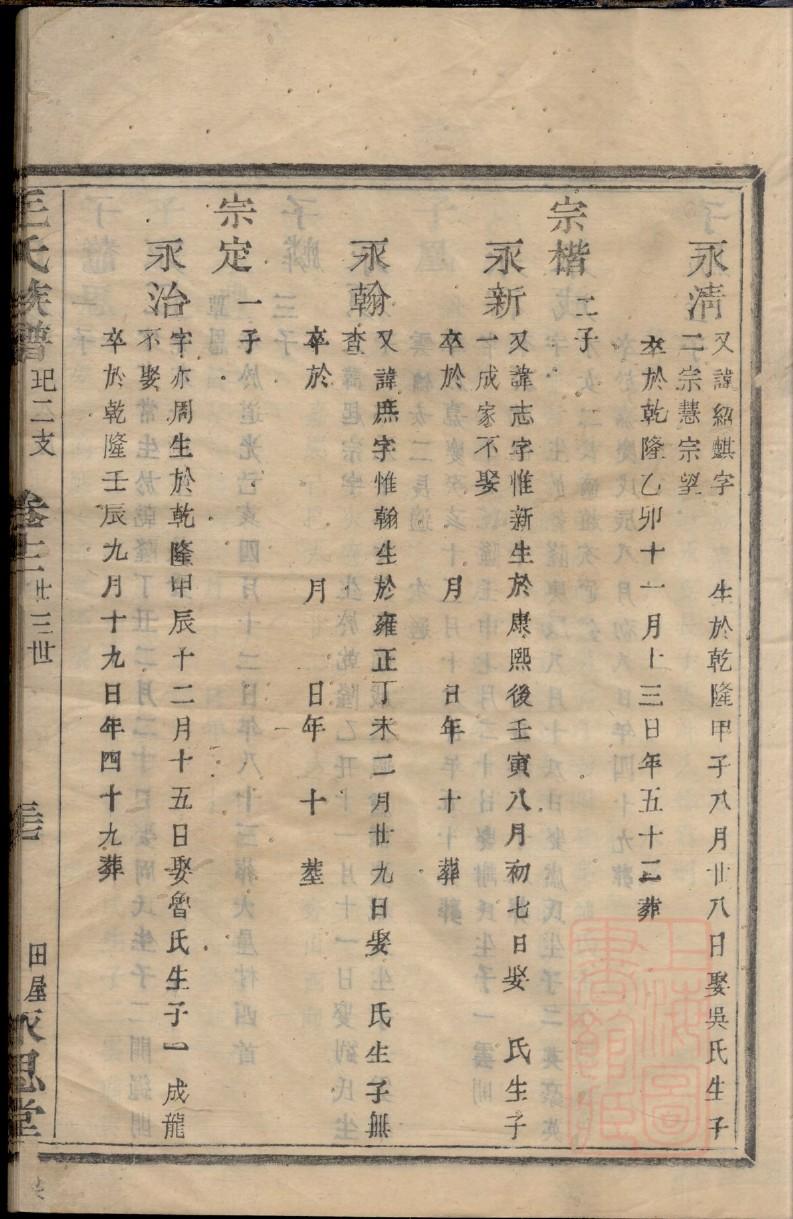 永清又諱紹麒字　生於乾隆甲子八月廿八日娶吳氏生子
二宗慧宗望
卒於乾隆乙卯十一月十三日年五十二葬
宗楷二子
永新又諱志字惟新生於康熙後壬寅八月初七日娶　氏生子
一成家不娶
卒於　月　日年　十　葬
永翰又諱庶字惟翰生於雍正丁未二月廿九日娶　氏生子無
查
卒於　月　日年　十　塟
宗定一子
永治字亦周生於乾隆甲辰十二月十五日娶魯氏生子一成龍
不娶
卒於乾隆壬辰九月十九日年四十九葬
王氏族譜　玘二支　卷十二　廿三世　田屋永思堂
上海圖書館藏